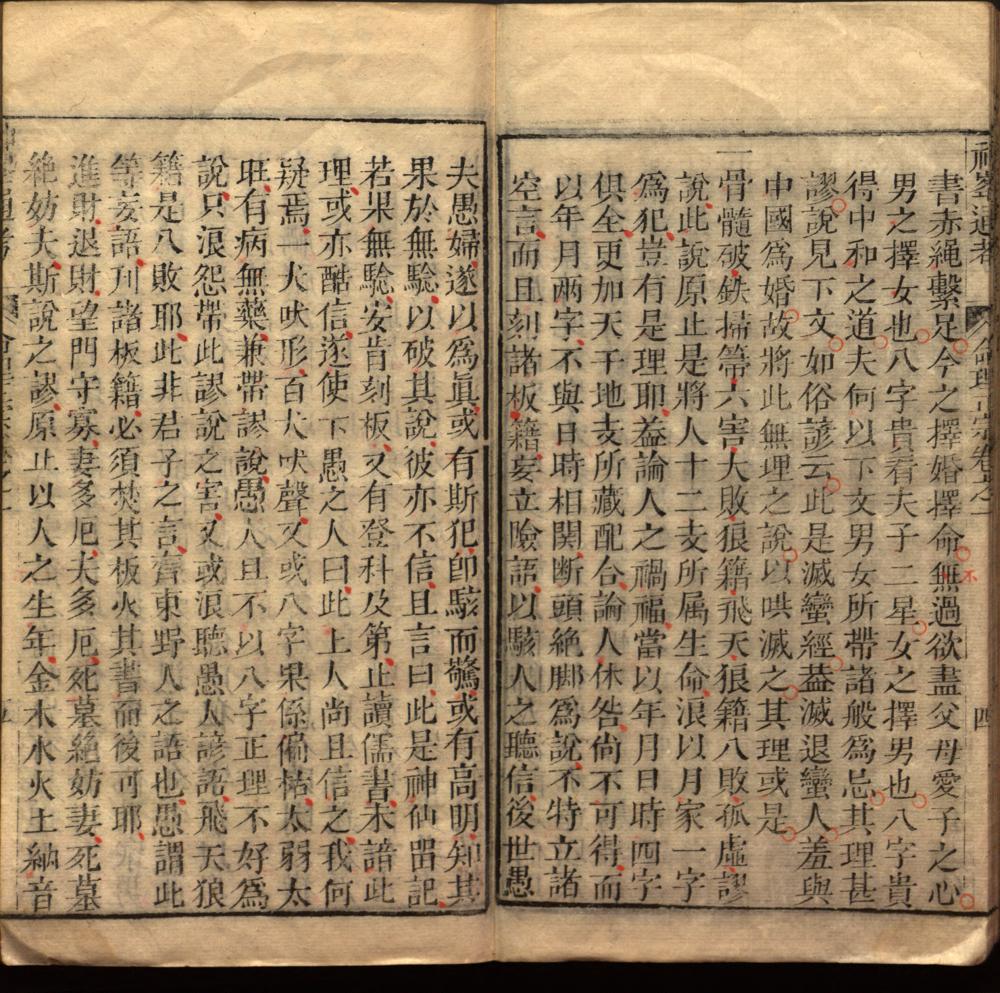 神峯通考 命理正宗卷之一 四
書赤繩繫足今之擇婚擇命無過欲盡父母愛子之心
不
男之擇女也八字貴看夫子二星女之擇男也八字貴
得中和之道夫何以下文男女所帶諸般爲忌其理甚
謬說見下文如俗諺云此是滅蠻經葢滅退蠻人羞與
中國爲婚故將此無理之說以哄滅之其理或是
一骨髓破鉄掃箒六害大敗狼籍飛天狼籍八敗孤虛謬
說此說原止是將人十二支所属生命浪以月家一字
爲犯豈有是理耶葢論人之禍福當以年月日時四字
俱全更加天干地支所藏配合論人休咎尙不可得而
以年月兩字不與日時相関断頭絶脚爲說不特立諸
空言而且刻諸板籍妄立險語以駭人之聽信後世愚
夫愚婦遂以爲眞或有斯犯卽駭而驚或有高明知其
果於無騐以破其說彼亦不信且言曰此是神仙畱記
若果無騐安肯刻板又有登科及第止讀儒書未諳此
理或亦酷信遂使下愚之人曰此上人尚且信之我何
疑焉一犬吠形百犬吠聲又或八字果係偏枯太弱太
旺有病無藥兼帶謬說愚人且不以八字正理不好爲
說只浪怨帶此謬說之害又或浪聽愚人諺語飛天狼
籍是八敗耶此非君子之言齊東野人之語也愚謂此
等妄語刊諸板籍必須焚其板火其書而後可耶
進財退財望門守寡妻多厄夫多厄死墓絶妨妻死墓
絶妨夫斯說之謬原止以人之生年金木水火土納音